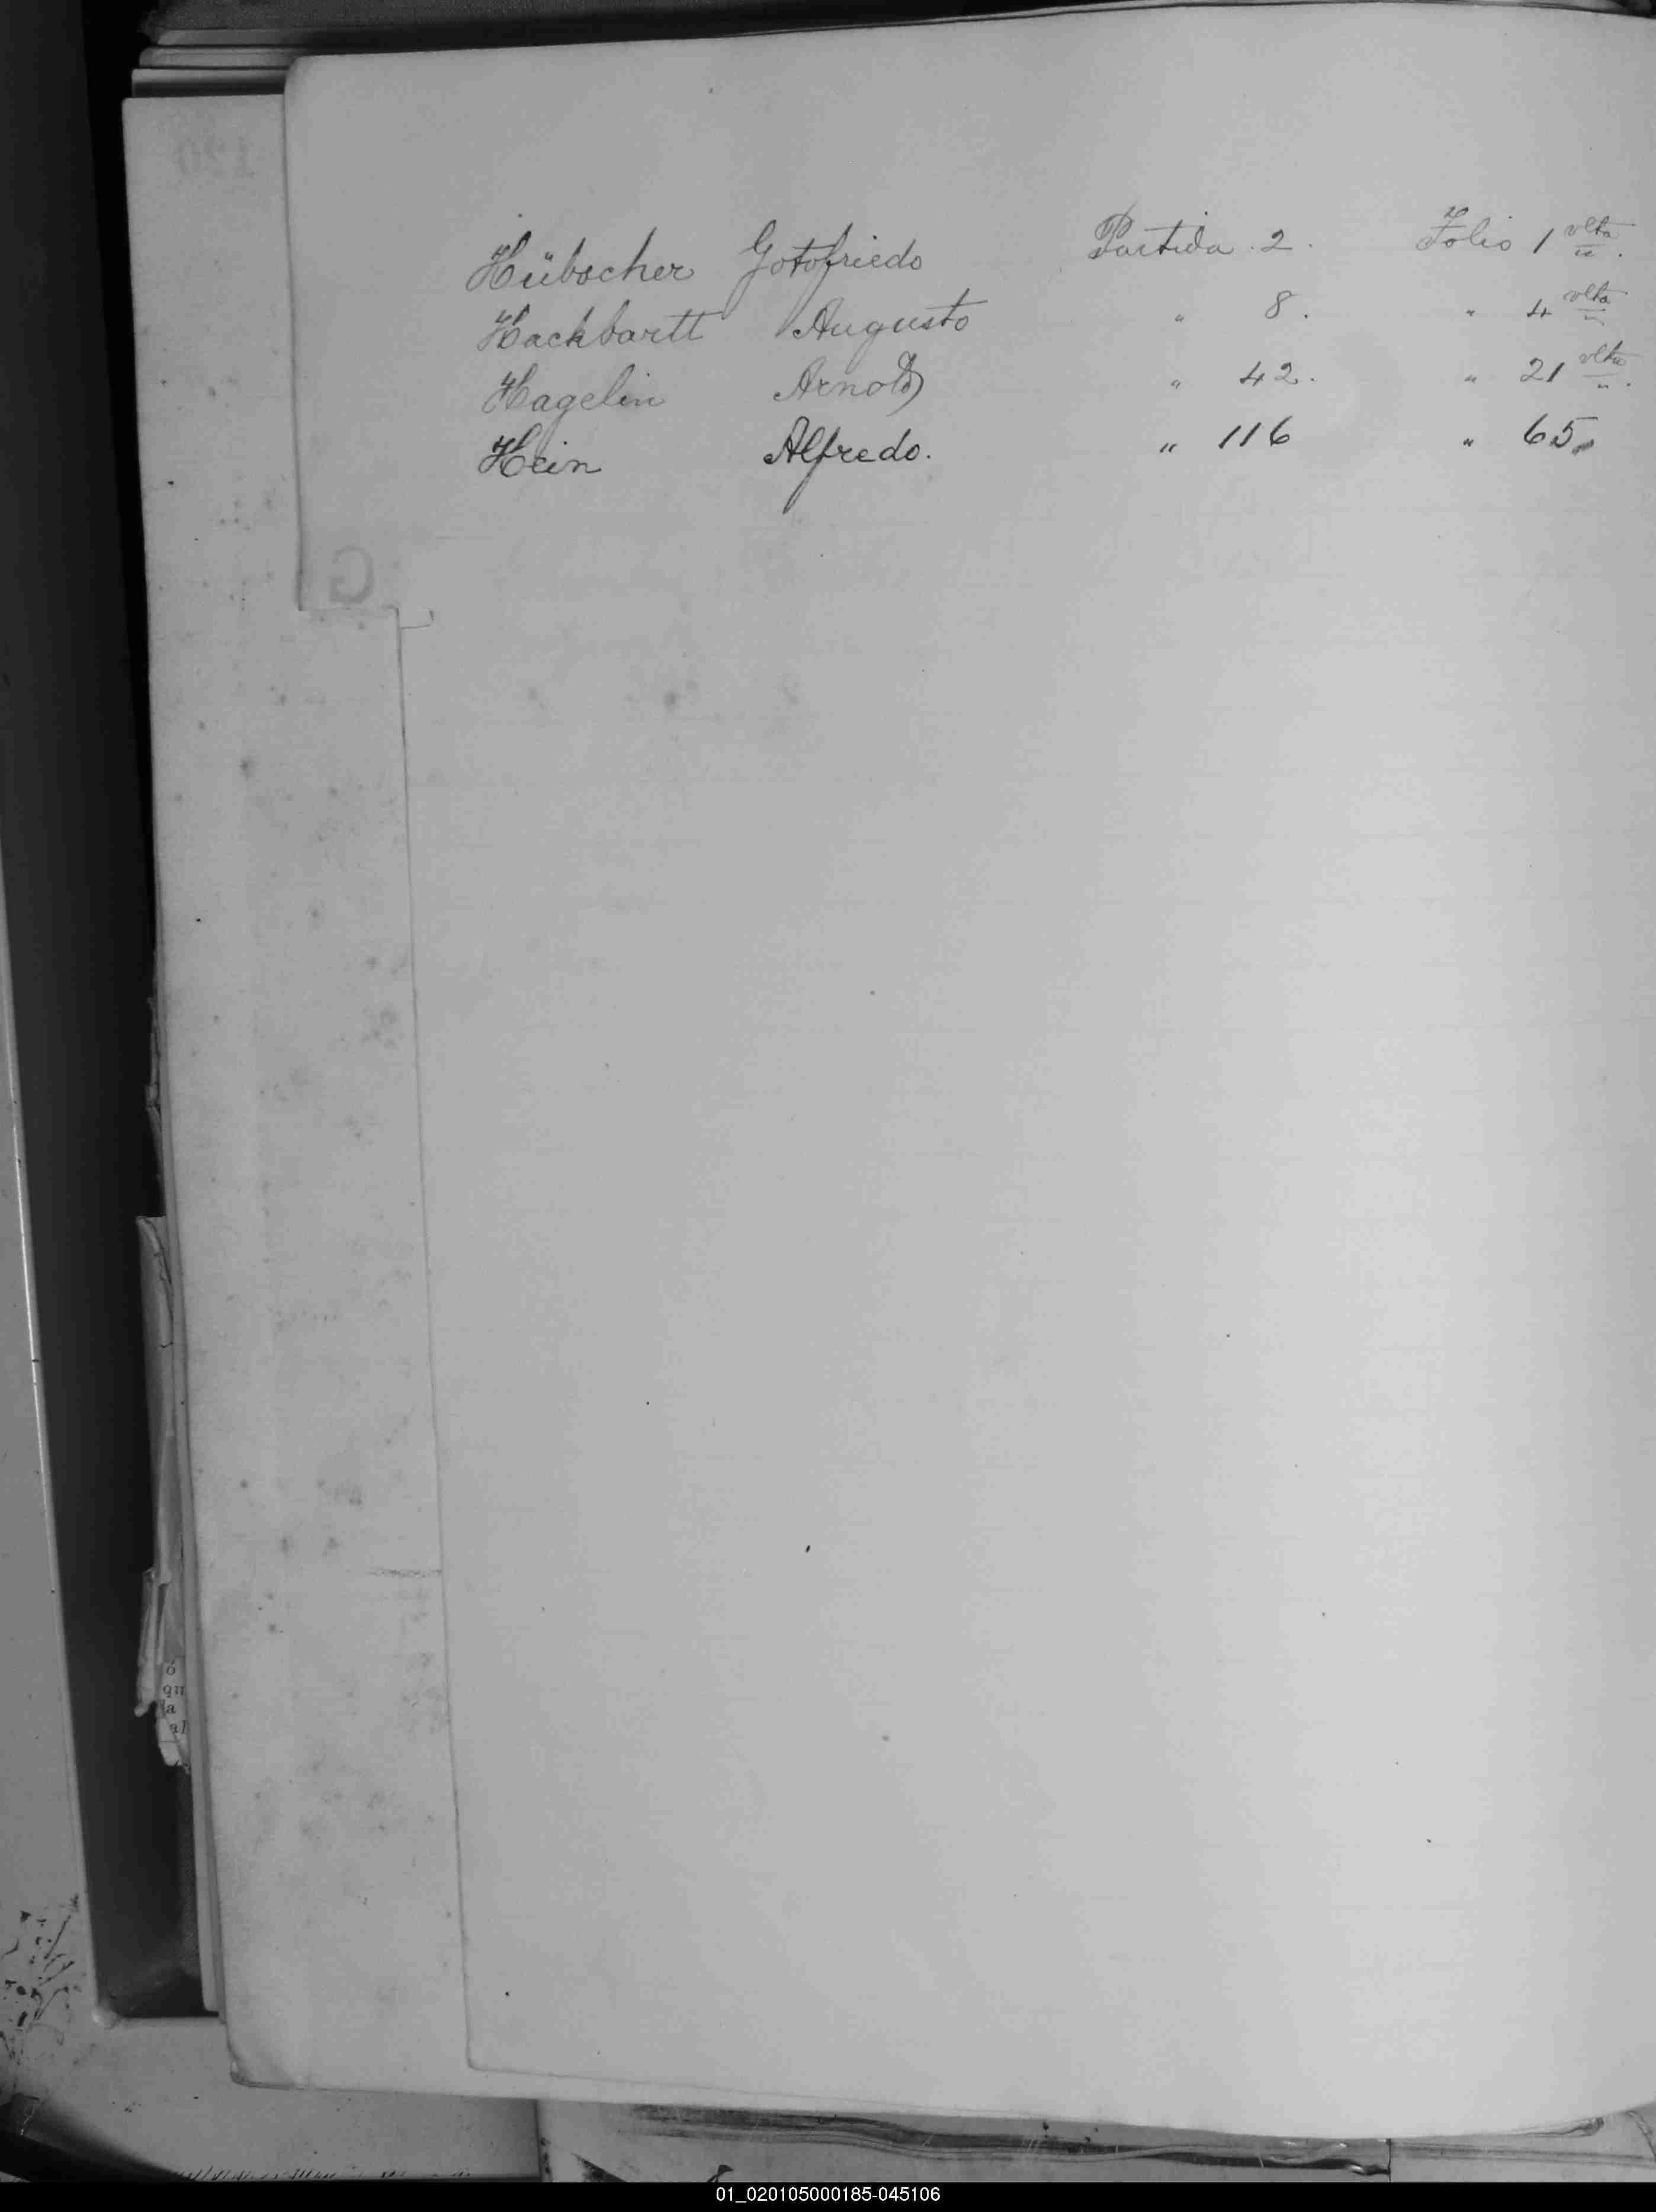 Hübscher Gotofriedo Partida 2. Folio 1 vlta.
Hackbartt Augusto " 8. " 4 vlta
Hagelin Arnold " 42. " 21 vlta.
Hein Alfredo. " 116 " 65.
120
G
ó
qu
la
al
01_020105000185-045106